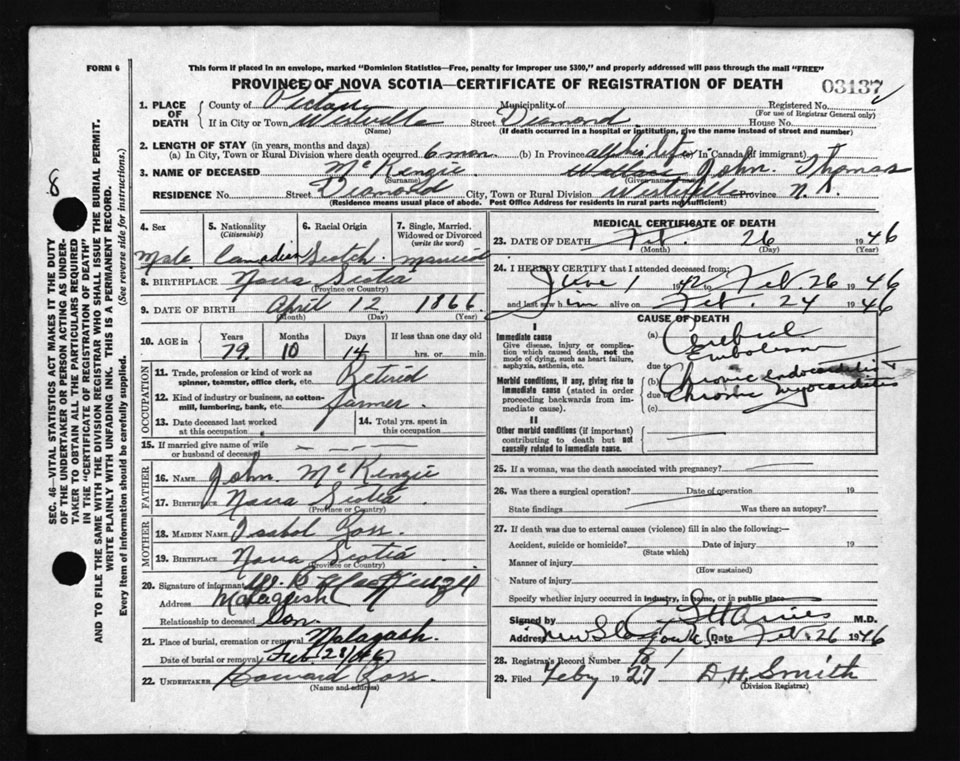 FORM 6
This form if placed in an envelope, marked "Dominion Statistics—Free, penalty for improper use $300," and properly addressed will pass through the mail "FREE"
PROVINCE OF NOVA SCOTIA—CERTIFICATE OF REGISTRATION OF DEATH
03137
1. PLACE OF DEATH
County of Pictou Municipality of Registered No.
(For use of Registrar General only)
If in City or Town Westville Street Diamond House No.
(Name) (If death occurred in a hospital or institution, give the name instead of street and number)
2. LENGTH OF STAY (in years, months and days)
(a) In City, Town or Rural Division where death occurred 6 mon. (b) In Province all his life In Canada (if immigrant)
3. NAME OF DECEASED McKenzie John Thomas
(Surname)
RESIDENCE No. Street Diamond City, Town or Rural Division Westville Province N.S.
(Residence means usual place of abode. Post Office Address for residents in rural parts not sufficient)
4. Sex 5. Nationality (Citizenship) 6. Racial Origin 7. Single, Married, Widowed or Divorced (write the word)
Male Canadian Scotch married
8. BIRTHPLACE Nova Scotia
(Province or Country)
9. DATE OF BIRTH April 12 1866
(Month) (Day) (Year)
10. AGE in Years Months Days If less than one day
79 10 14 hrs. or min.
OCCUPATION
11. Trade, profession or kind of work as spinner, teamster, office clerk, etc. Retired
12. Kind of industry or business, as cotton-mill, lumbering, bank, etc. farmer
13. Date deceased last worked at this occupation 14. Total yrs. spent in this occupation
15. If married give name of wife or husband of deceased
FATHER
16. NAME John McKenzie
17. BIRTHPLACE Nova Scotia
(Province or Country)
MOTHER
18. MAIDEN NAME Isabol Ross
19. BIRTHPLACE Nova Scotia
(Province or Country)
20. Signature of informant MacKenzie
Address Malagash
Relationship to deceased Son.
21. Place of burial, cremation or removal Malagash.
Date of burial or removal Feb. 28/46
22. UNDERTAKER Howard Ross
(Name and address)
MEDICAL CERTIFICATE OF DEATH
23. DATE OF DEATH Feb. 26 1946
(Month) (Day) (Year)
24. I HEREBY CERTIFY that I attended deceased from:
June 1 1942 to Feb. 26 1946
and last saw him alive on Feb. 24 1946
CAUSE OF DEATH
I
Immediate cause
Give disease, injury or complication which caused death, not the mode of dying, such as heart failure, asphyxia, asthenia, etc.
(a) Cerebral Embolism
due to
Morbid conditions, if any, giving rise to immediate cause (stated in order proceeding backwards from immediate cause).
(b) Chronic endocarditis
due to Chronic myocarditis
(c)
II
Other morbid conditions (if important) contributing to death but not causally related to immediate cause.
25. If a woman, was the death associated with pregnancy?
26. Was there a surgical operation? Date of operation 19
State findings Was there an autopsy?
27. If death was due to external causes (violence) fill in also the following:—
Accident, suicide or homicide? Date of injury 19
(State which)
Manner of injury
(How sustained)
Nature of injury
Specify whether injury occurred in industry, in home, or in public place
Signed by M.D.
Address New Glasgow Date Feb. 26 1946
28. Registrar's Record Number
29. Filed Feby 1927 D.H. Smith
(Division Registrar)
8
SEC. 46—VITAL STATISTICS ACT MAKES IT THE DUTY
OF THE UNDERTAKER OR PERSON ACTING AS UNDERTAKER TO OBTAIN ALL THE PARTICULARS REQUIRED
IN THE "CERTIFICATE OF REGISTRATION OF DEATH"
AND TO FILE THE SAME WITH THE DIVISION REGISTRAR WHO SHALL ISSUE THE BURIAL PERMIT.
WRITE PLAINLY WITH UNFADING INK. THIS IS A PERMANENT RECORD.
Every item of information should be carefully supplied. (See reverse side for instructions.)